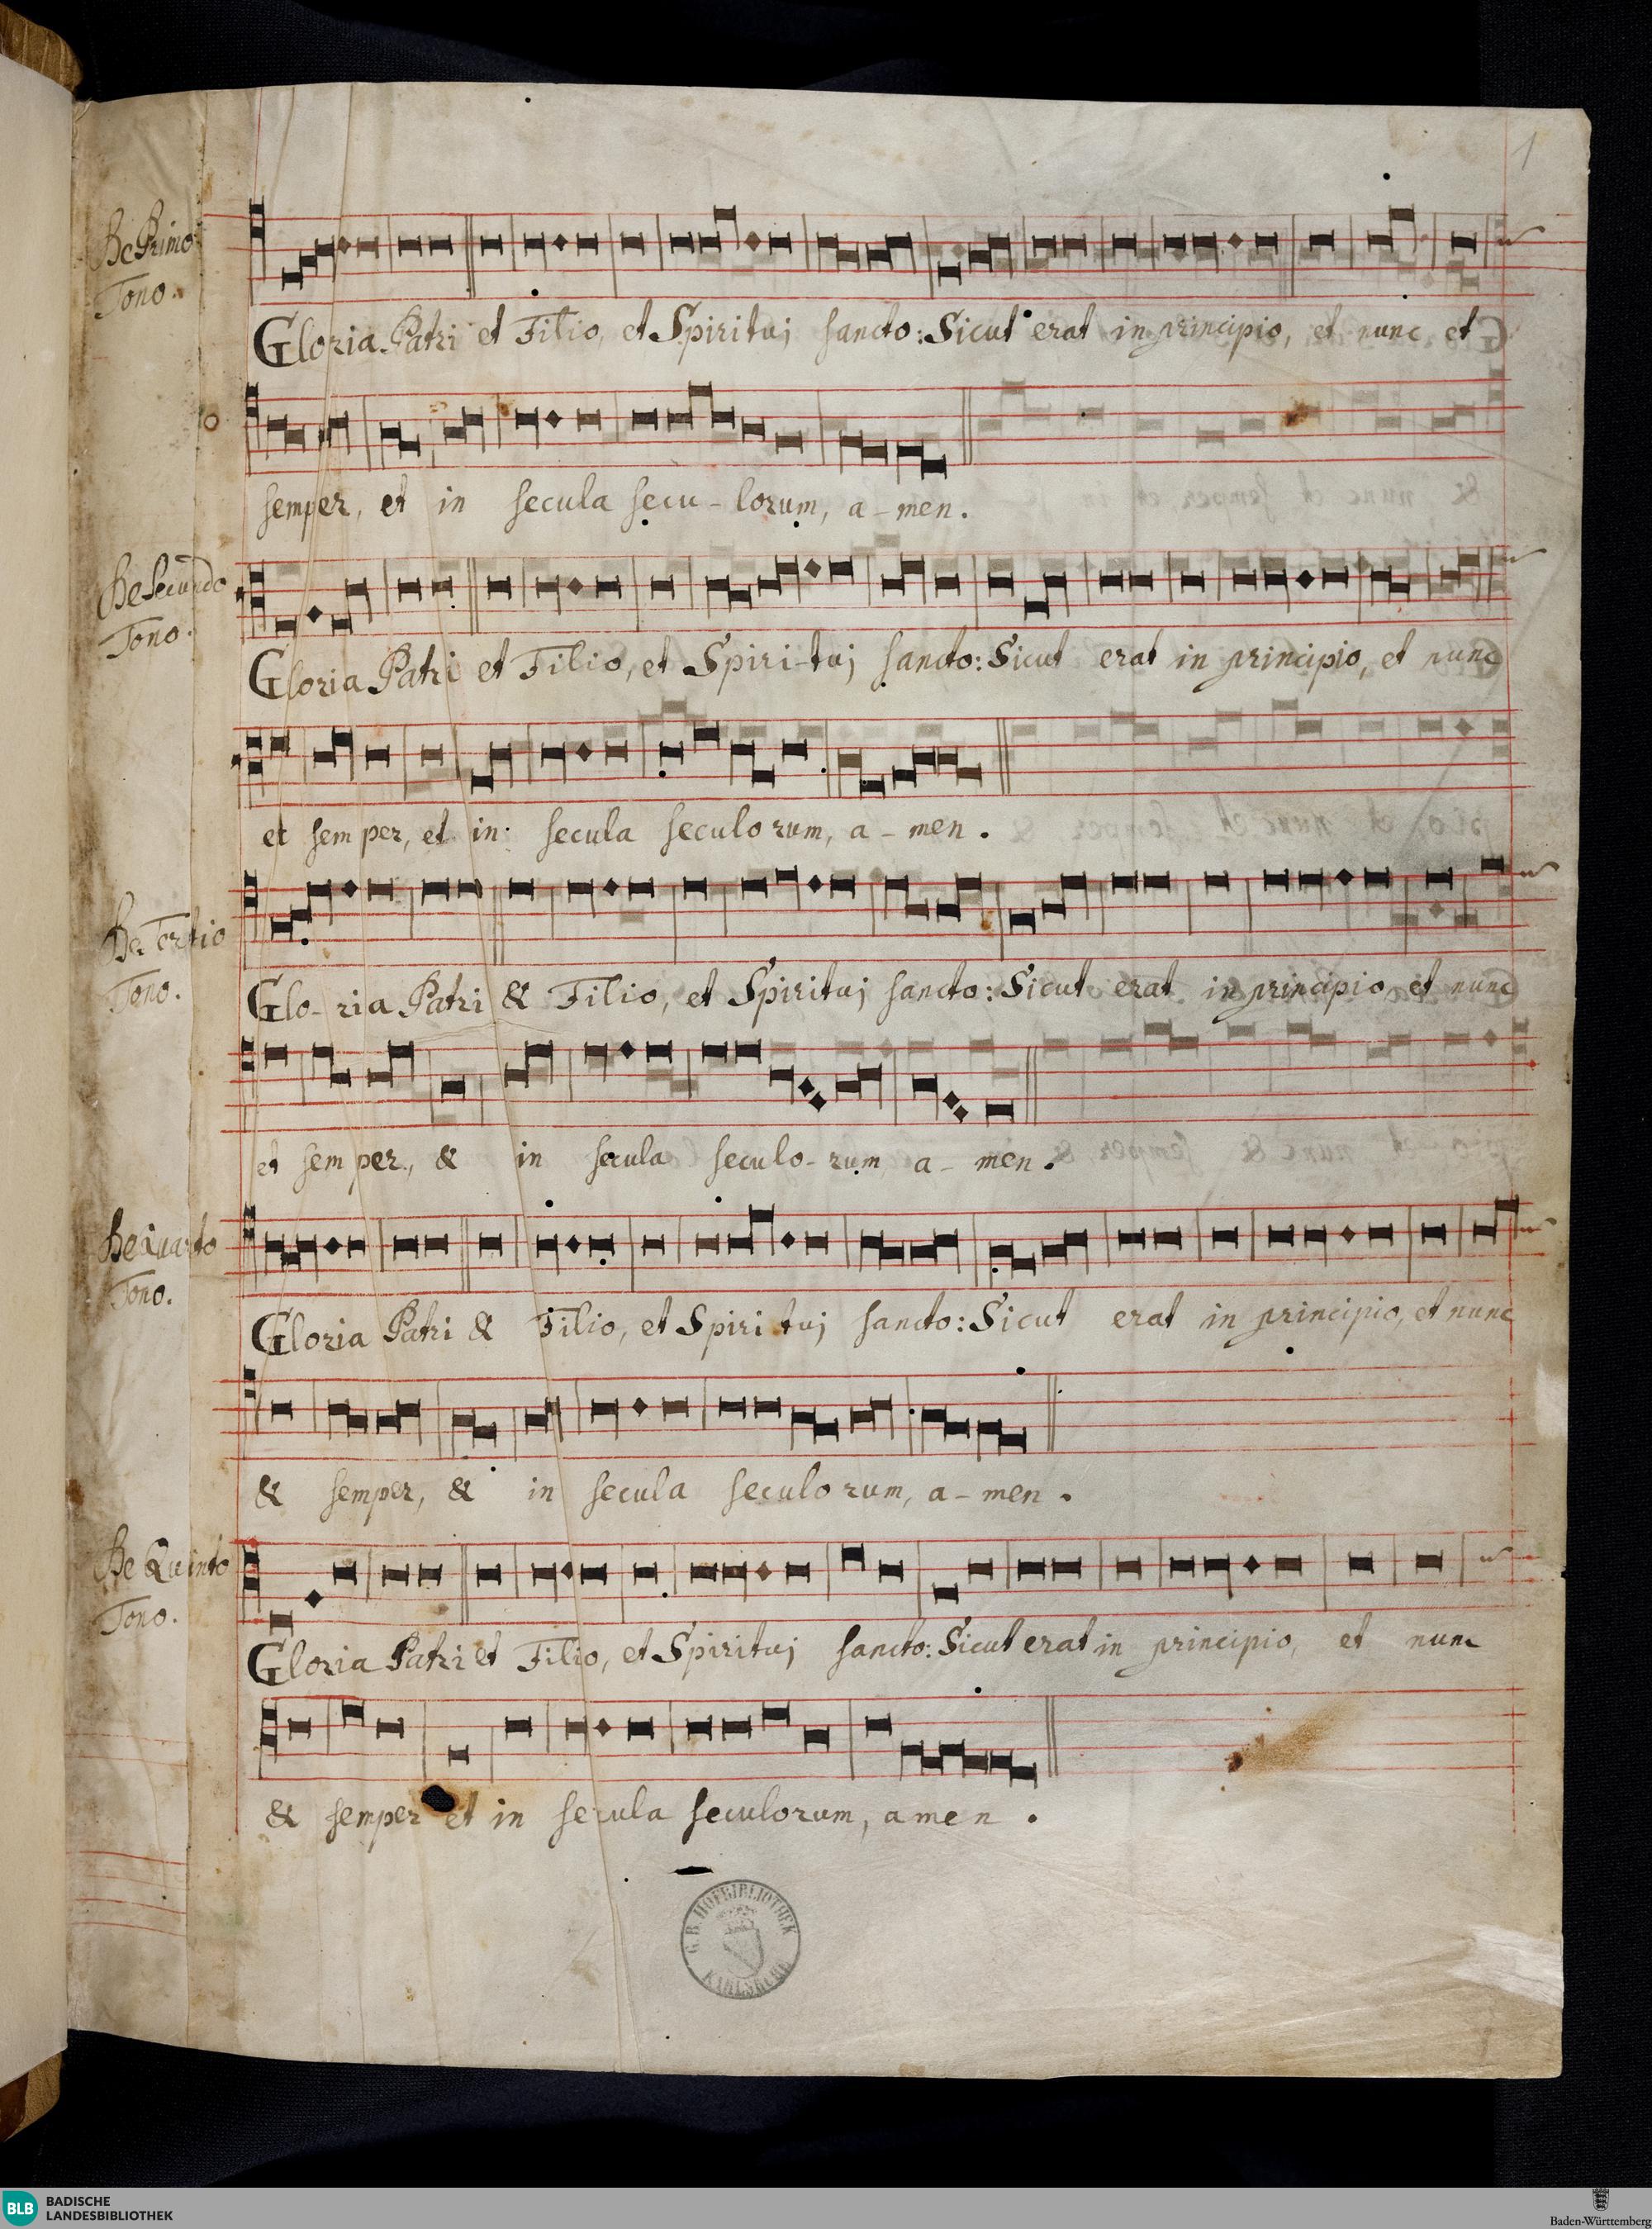 1
De Primo
Tono.
Gloria Patri et Filio, et Spirituj sancto: Sicut erat in principio, et nunc et
semper, et in secula secu-lorum, a-men.
De Secundo
Tono.
Gloria Patri et Filio, et Spiri-tuj sancto: Sicut erat in principio, et nunc
et semper, et in secula seculorum, a-men.
De Tertio
Tono.
Glo-ria Patri & Filio, et Spirituj sancto: Sicut erat in principio et nunc
et semper, & in secula seculo-rum a-men.
De Quarto
Tono.
Gloria Patri & Filio, et Spirituj sancto: Sicut erat in principio, et nunc
& semper, & in secula seculorum, a-men.
De Quinto
Tono.
Gloria Patri et Filio, et Spirituj sancto: Sicut erat in principio, et nunc
& semper et in secula seculorum, amen.
G. B. HOFBIBLIOTHEK
KARLSRUHE
BLB BADISCHE
LANDESBIBLIOTHEK
Baden-Württemberg